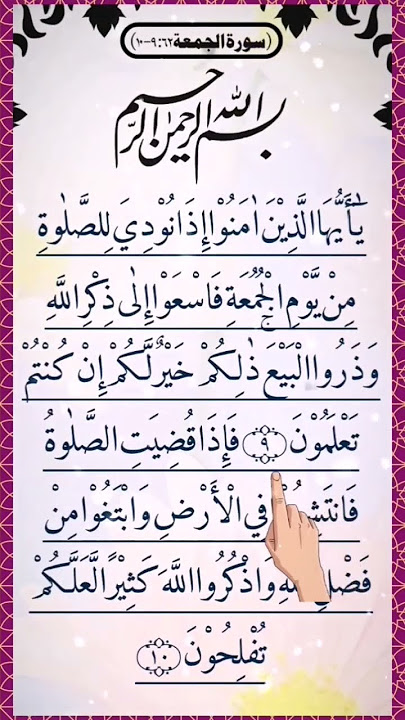 (سورة الجمعة ٦٢:٩-١٠)
بسم الله الرحمن الرحيم
يٰۤأَيُّهَا الَّذِيْنَ اٰمَنُوْا إِذَا نُوْدِيَ لِلصَّلٰوةِ
مِنْ يَّوْمِ الْجُمُعَةِ فَاسْعَوْا إِلٰى ذِكْرِ اللَّهِ
وَذَرُوا الْبَيْعَ ذٰلِكُمْ خَيْرٌ لَّكُمْ إِنْ كُنْتُمْ
تَعْلَمُوْنَ ٩ فَإِذَا قُضِيَتِ الصَّلٰوةُ
فِي الْأَرْضِ وَابْتَغُوْا مِنْ
وَاذْكُرُوا اللَّهَ كَثِيْرًا لَّعَلَّكُمْ
تُفْلِحُوْنَ ١٠